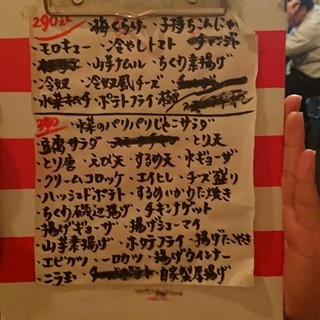 290コーナー ・梅くらげ・子持ちこんにゃく
・モロキュー・冷やしトマト
・山芋ナムル・ちくわ素揚げ
・冷奴・冷奴風チーズ
・水菜キムチ・ポテトフライ
390 ・水菜のパリパリじゃこサラダ
・豆腐サラダ・とり天
・とり唐・えび天・するめ天・水ギョーザ
・クリームコロッケ・エイヒレ・チーズ盛り
・ハッシュドポテト・するめいかりた焼き
・ちくわ磯辺揚げ・チキンナゲット
・揚げギョーザ・揚げシューマイ
・山芋素揚げ・ホタテフライ・揚げたこやき
・エビカツ・一口カツ・揚げウインナー
・ニラ玉・自家製厚揚げ